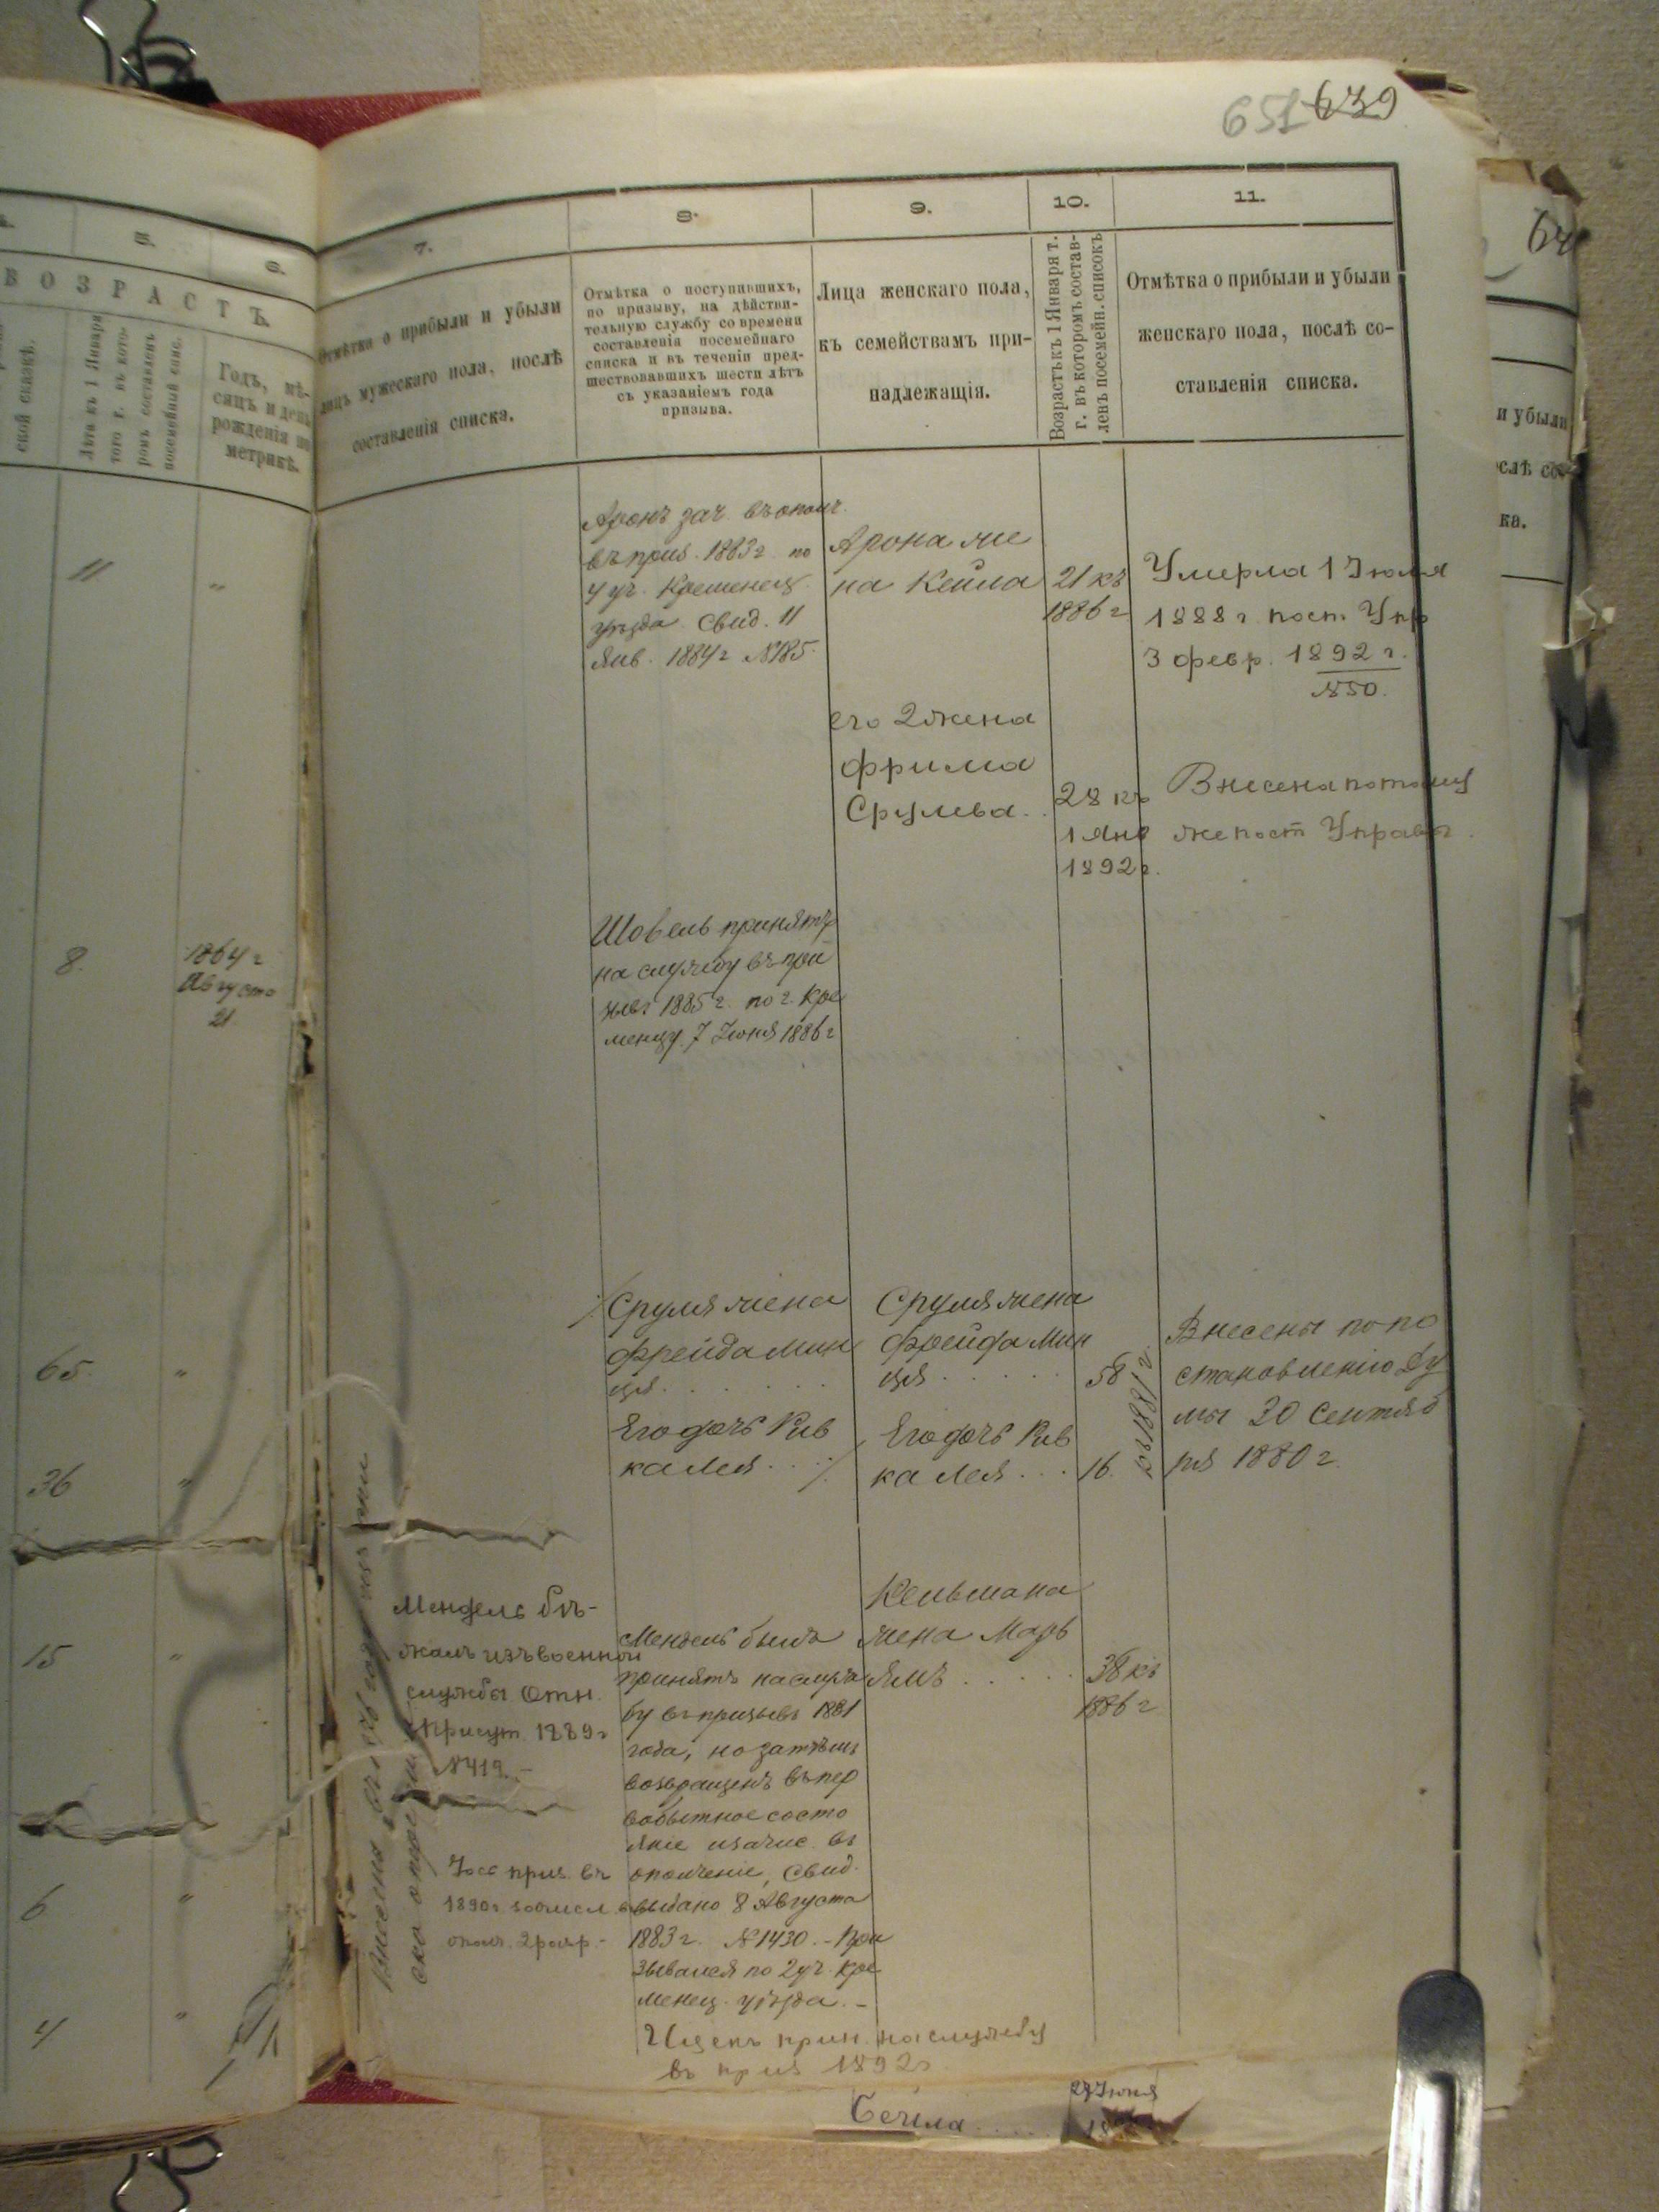 651 639
5.
6.
7.
8.
9.
10.
11.
ВОЗРАСТЪ.
ской сказкѣ.
Лѣта къ 1 Января
того г. въ кото-
ромъ составленъ
посемейный спис.
Годъ, мѣ-
сяцъ и день
рожденія по
метрикѣ.
Отмѣтка о прибыли и убыли
лицъ мужескаго пола, послѣ
составленія списка.
Отмѣтка о поступившихъ,
по призыву, на дѣйстви-
тельную службу со времени
составленія посемейнаго
списка и въ теченіи пред-
шествовавшихъ шести лѣтъ
съ указаніемъ года
призыва.
Лица женскаго пола,
къ семействамъ при-
надлежащія.
Возрастъ къ 1 Января т.
г. въ которомъ состав-
ленъ посемейн. списокъ
Отмѣтка о прибыли и убыли
женскаго пола, послѣ со-
ставленія списка.
и убыли
слѣ со-
ка.
11 "
Аронъ зач. въ ополч.
въ приз. 1883 г. по
4 уч. Кременец.
уѣзда. Свид. 11
Янв. 1884 г. №185.
Арона же
на Кейла
21 къ
1886 г
Умерла 1 Июля
1888 г. пост. Упр
3 февр. 1892 г.
№50.
его 2 жена
Фрима
Срулева..
28 къ
1 Янв
1892 г.
Внесена по тому
же пост Управы.
8.
1864 г
Августа
21
Шовель принятъ
на службу въ при
зывъ 1885 г. по г. Кре
менцу 7 Июня 1886 г
65. "
36 "
Сруля жена
Фрейда Мин
ця.......
Его дочь Рив
ка Лея...
Сруля жена
Фрейда Мин
ця.....
Его дочь Рив
ка Лея...
58
16.
къ 1881 г.
Внесены по по
становленію Ду
мы 30 Сентяб
ря 1880 г.
15 "
6 "
4 "
Мендель бѣ-
жалъ изъ военной
службы. Отн.
Присут. 1889 г
№419.-
приз. въ
1890 г.
опол. 2 разр.-
Мендель былъ
принятъ на служ
бу въ призывъ 1881
года, но затѣмъ
возвращенъ въ пер
вобытное состо
яніе и зачис. въ
ополченіе, свид.
выдано 8 Августа
1883 г. №1430.- При
зывался по 2 уч. Кре
менец. уѣзда.-
Ицекъ прин. на службу
въ приз 1892 г.
Кельмана
жена Марь
ямъ.....
38 къ
1886 г
Бейла....